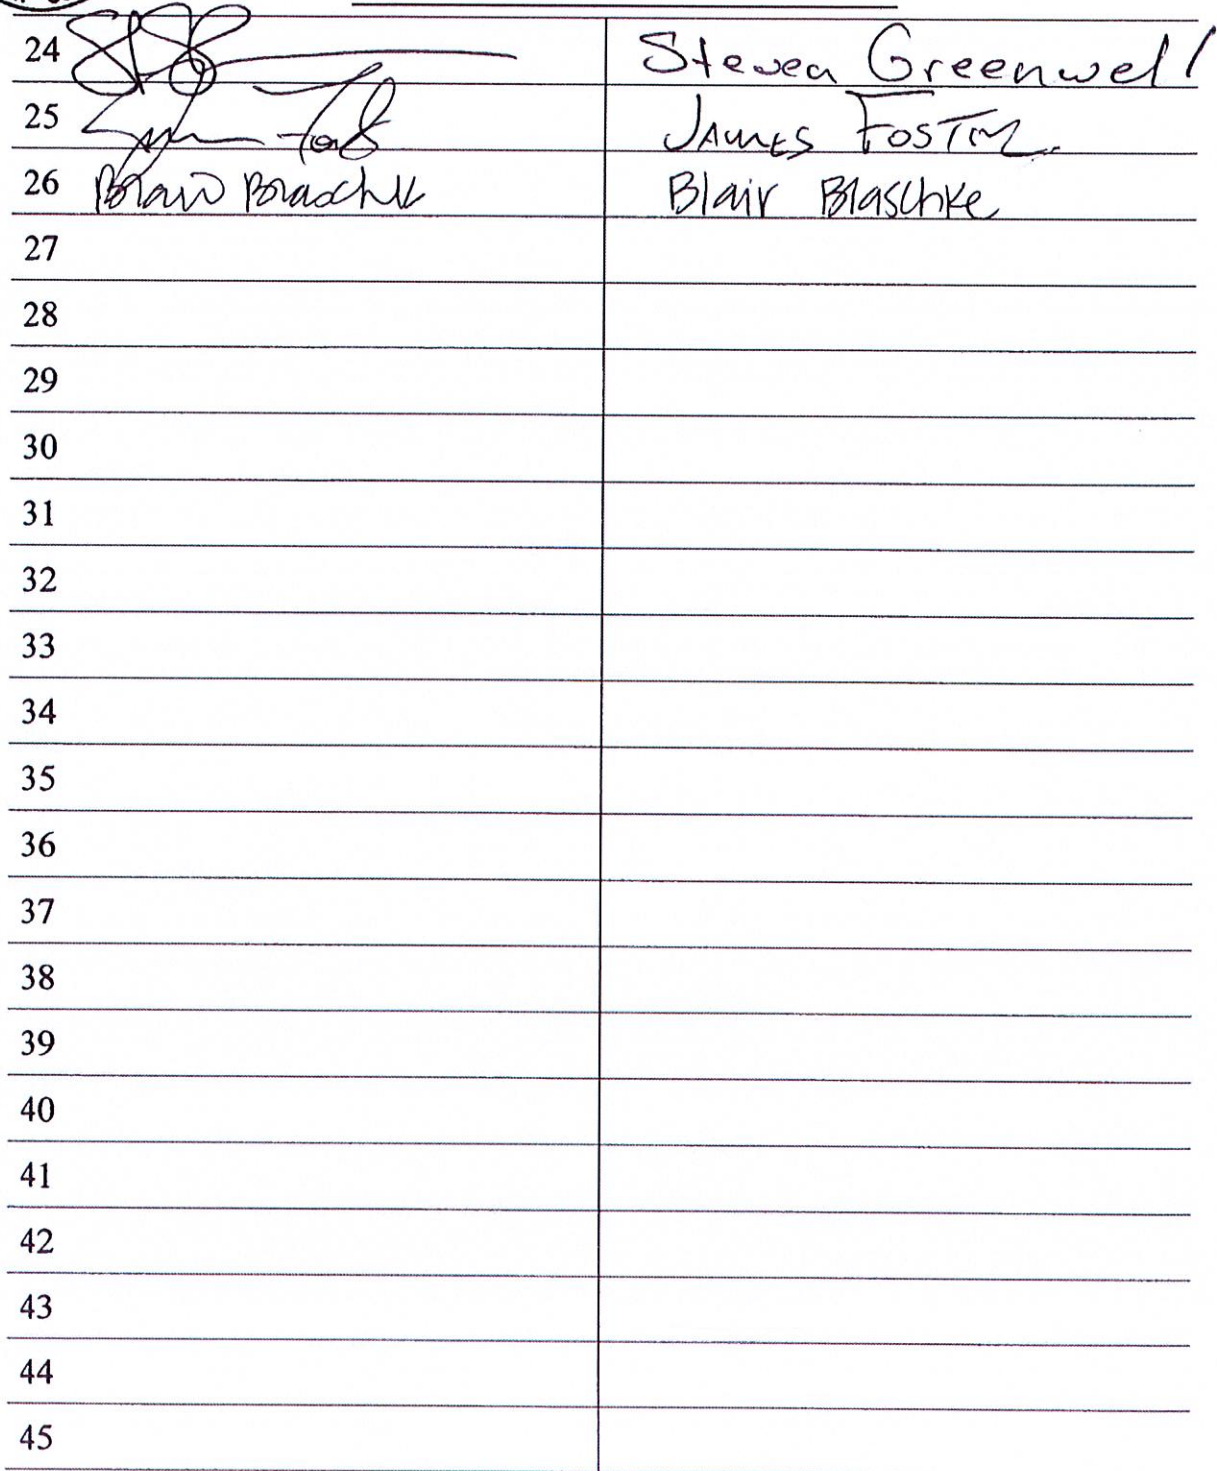 24 Steven Greenwell
25 JAMES FOSTER
26 Blair Blaschke Blair Blaschke
27
28
29
30
31
32
33
34
35
36
37
38
39
40
41
42
43
44
45